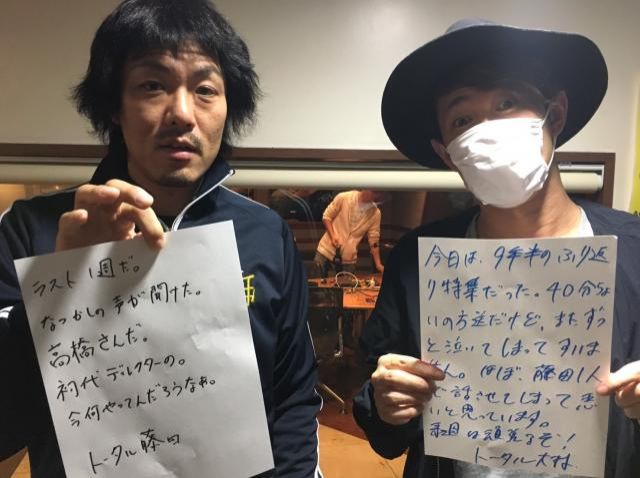 ラスト1週だ。
なつかしの声が聞けた。
高橋さんだ。
初代ディレクターの。
今何やってんだろうなあ。
トータル藤田
今日は、9年半のふり返
り特集だった。40分ぐら
いの放送だけど、またずっ
と泣いてしまってすいま
せん。ほぼ、藤田1人
で話させてしまって悪
いと思っています。
来週は頑張るぞ!
トータル大村